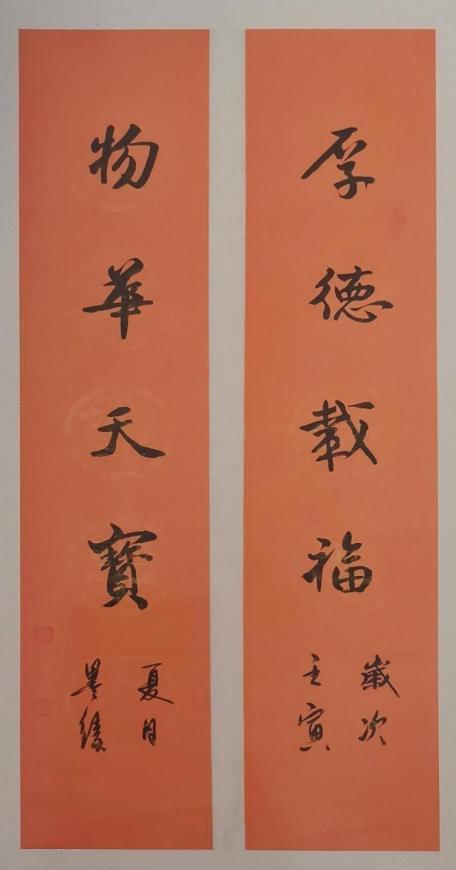 厚德載福
歲次
壬寅
物華天寶
夏月
墨